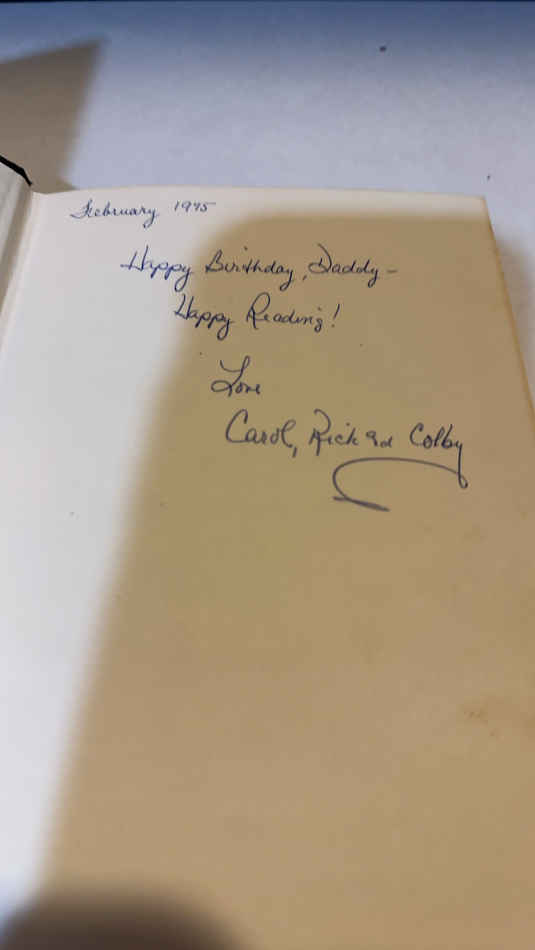 February 1975
Happy Birthday, Daddy –
Happy Reading!
Love
Carol, Rick and Colby